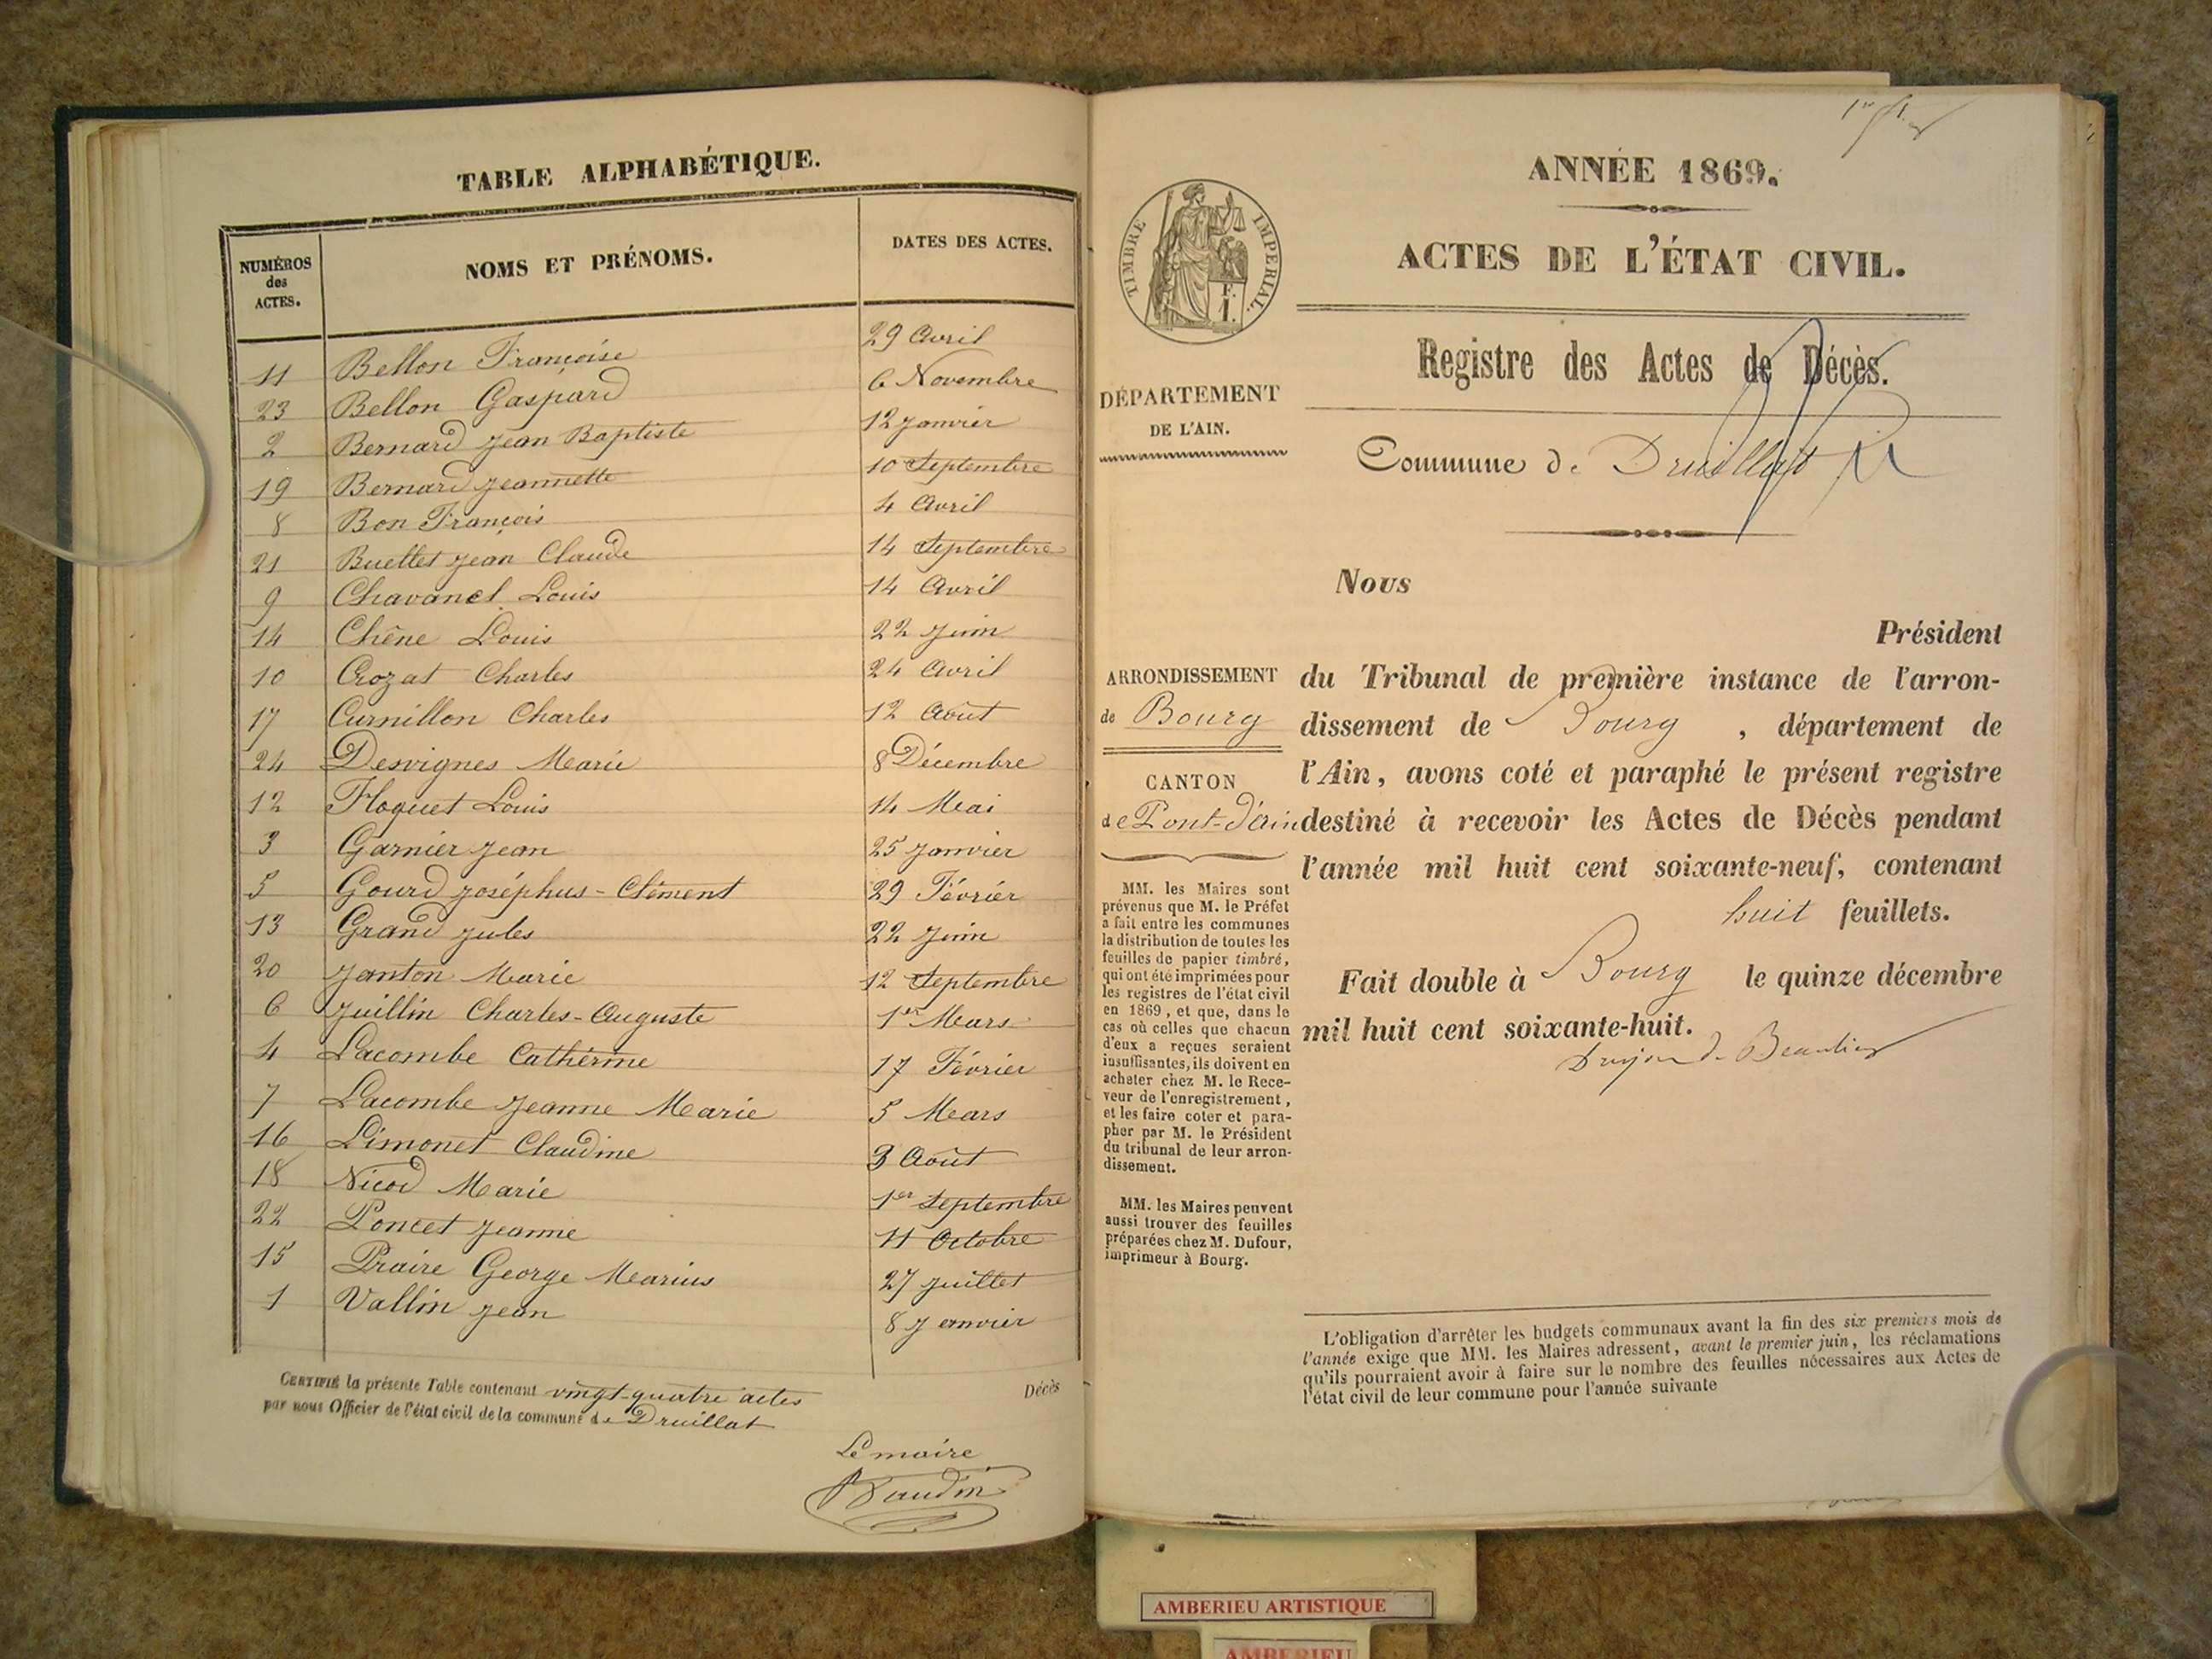 TABLE ALPHABÉTIQUE.
NUMÉROS des ACTES. NOMS ET PRÉNOMS. DATES DES ACTES.
11 Bellon Françoise 29 Avril
23 Bellon Gaspard 6 Novembre
2 Bernard Jean Baptiste 12 Janvier
19 Bernard Jeannette 10 Septembre
8 Bon François 4 Avril
21 Buellet Jean Claude 14 Septembre
9 Chavanel Louis 14 Avril
14 Chêne Louis 22 Juin
10 Crozat Charles 24 Avril
17 Curnillon Charles 12 Août
24 Desvignes Marie 8 Décembre
12 Floquet Louis 14 Mai
3 Garnier Jean 25 Janvier
5 Gourd Joséphus-Clément 29 Février
13 Grand Jules 22 Juin
20 Janton Marie 12 Septembre
6 Juillin Charles-Auguste 1er Mars
4 Lacombe Cathérine 17 Février
7 Lacombe Jeanne Marie 5 Mars
16 Limonet Claudine 3 Août
18 Nicod Marie 1er Septembre
22 Poncet Jeanne 11 Octobre
15 Praire George Marius 27 Juillet
1 Vallin Jean 8 Janvier
CERTIFIÉ la présente Table contenant vingt-quatre actes Décès
par nous Officier de l'état civil de la commune de Druillat
Le maire
Baudin
ANNÉE 1869.
ACTES DE L'ÉTAT CIVIL.
TIMBRE IMPERIAL.
F.
1.
Registre des Actes de Décès.
DÉPARTEMENT
DE L'AIN.
Commune de Druillat
Nous
Président
du Tribunal de première instance de l'arron-
dissement de Bourg, département de
l'Ain, avons coté et paraphé le présent registre
destiné à recevoir les Actes de Décès pendant
l'année mil huit cent soixante-neuf, contenant
huit feuillets.
Fait double à Bourg le quinze décembre
mil huit cent soixante-huit.
ARRONDISSEMENT
de Bourg
CANTON
de Pont-d'Ain
MM. les Maires sont
prévenus que M. le Préfet
a fait entre les communes
la distribution de toutes les
feuilles de papier timbré,
qui ont été imprimées pour
les registres de l'état civil
en 1869, et que, dans le
cas où celles que chacun
d'eux a reçues seraient
insuffisantes, ils doivent en
acheter chez M. le Rece-
veur de l'enregistrement,
et les faire coter et para-
pher par M. le Président
du tribunal de leur arron-
dissement.
MM. les Maires peuvent
aussi trouver des feuilles
préparées chez M. Dufour,
imprimeur à Bourg.
L'obligation d'arrêter les budgets communaux avant la fin des six premiers mois de
l'année exige que MM. les Maires adressent, avant le premier juin, les réclamations
qu'ils pourraient avoir à faire sur le nombre des feuilles nécessaires aux Actes de
l'état civil de leur commune pour l'année suivante
AMBERIEU ARTISTIQUE
AMBERIEU